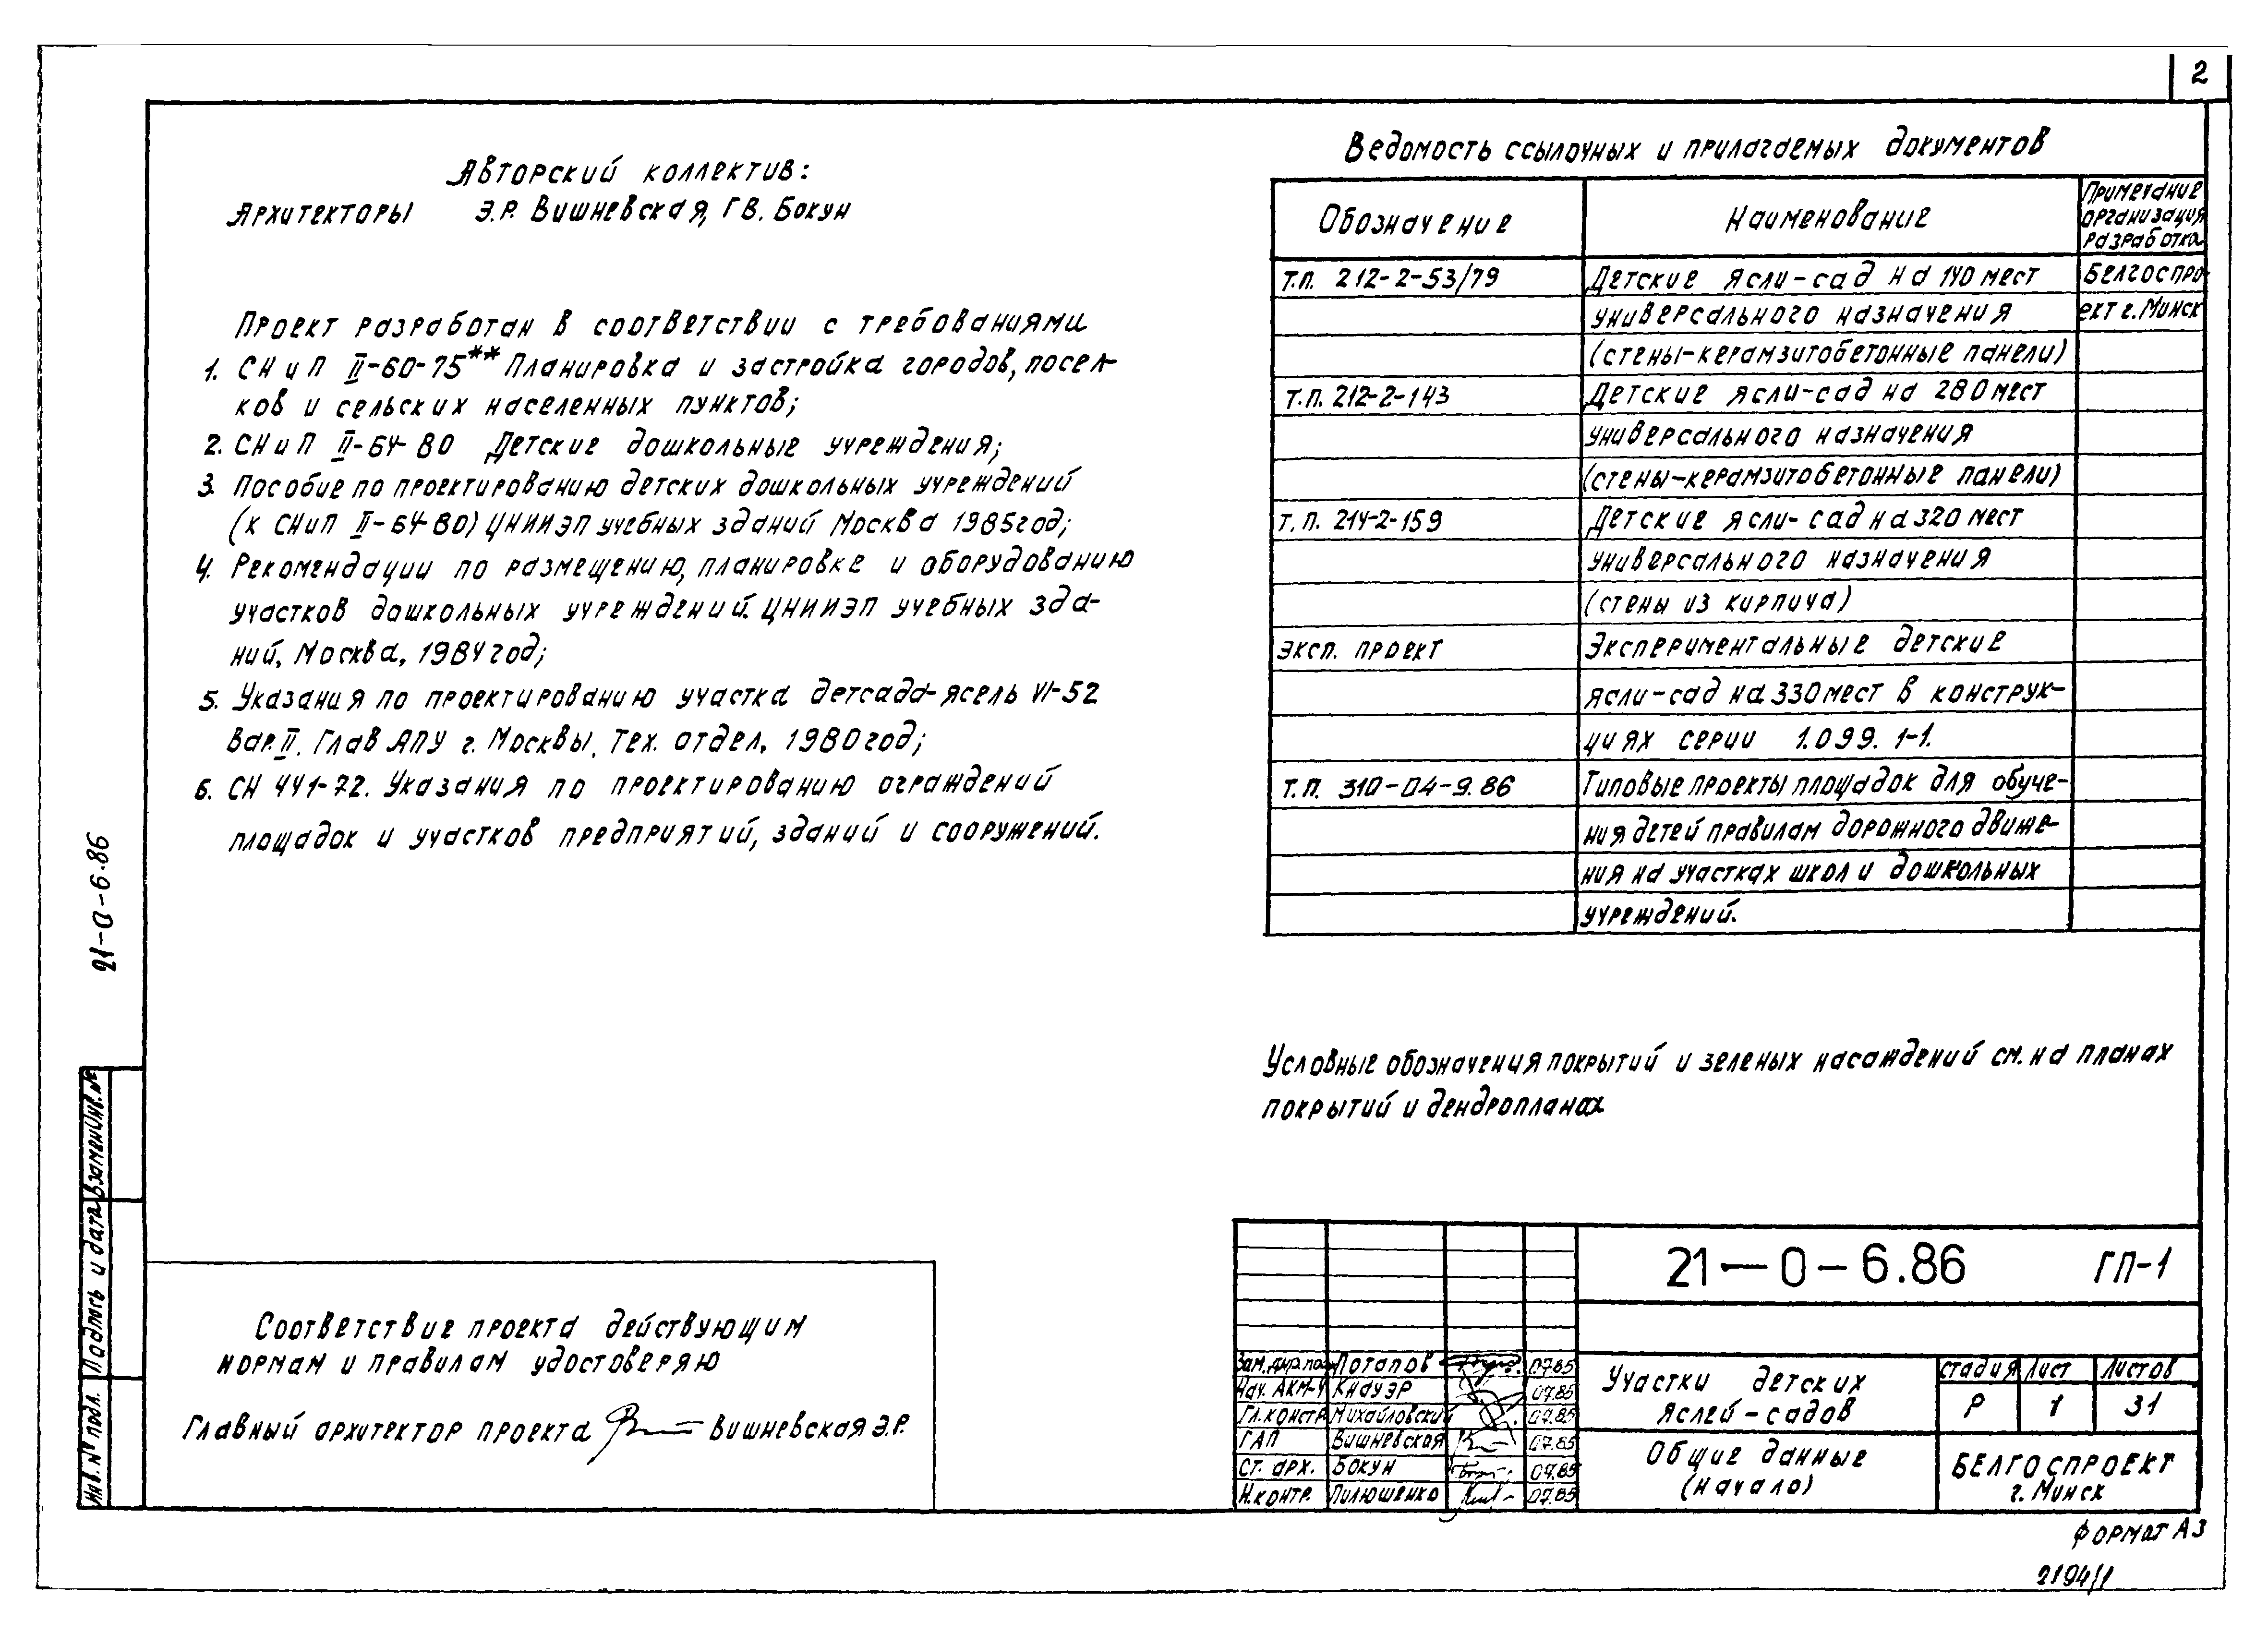 2
Авторский коллектив:
Архитекторы Э.Р. Вишневская, Г.В. Бокун
Проект разработан в соответствии с требованиями
1. СНиП II-60-75** Планировка и застройка городов, посел-
ков и сельских населенных пунктов;
2. СНиП II-64-80 Детские дошкольные учреждения;
3. Пособие по проектированию детских дошкольных учреждений
(к СНиП II-64-80) ЦНИИЭП учебных зданий Москва 1985год;
4. Рекомендации по размещению, планировке и оборудованию
участков дошкольных учреждений. ЦНИИЭП учебных зда-
ний, Москва, 1984год;
5. Указания по проектированию участка детсада-ясель VI-52
Вар. II. ГлавАПУ г. Москвы. Тех. отдел, 1980год;
6. СН 441-72. Указания по проектированию ограждений
площадок и участков предприятий, зданий и сооружений.
Ведомость ссылочных и прилагаемых документов
Обозначение Наименование Примечание организация разработка
Т.п. 212-2-53/79 Детские ясли-сад на 140 мест Белгоспро-
универсального назначения ект г. Минск
(стены-керамзитобетонные панели)
Т.п. 212-2-143 Детские ясли-сад на 280 мест
универсального назначения
(стены-керамзитобетонные панели)
Т.п. 214-2-159 Детские ясли-сад на 320 мест
универсального назначения
(стены из кирпича)
Эксп. проект Экспериментальные детские
ясли-сад на 330 мест в конструк-
циях серии 1.099.1-1.
Т.п. 310-04-9.86 Типовые проекты площадок для обуче-
ния детей правилам дорожного движе-
ния на участках школ и дошкольных
учреждений.
Условные обозначения покрытий и зеленых насаждений см. на планах
покрытий и дендропланах
21-0-6.86
Взамен инв. №
Подпись и дата
Инв. № подл.
Соответствие проекта действующим
нормам и правилам удостоверяю
Главный архитектор проекта Вишневская Э.Р.
21-0-6.86 ГП-1
Потапов 07.85
Нач. АКМ-4 Кнауэр 07.85
Гл. констр. Михайловский 07.85
ГАП Вишневская 07.85
Ст. арх. Бокун 07.85
Н.контр. Пилюшенко 07.85
Участки детских
яслей-садов
Стадия Лист Листов
Р 1 31
Общие данные
(начало)
БЕЛГОСПРОЕКТ
г. Минск
Формат А3
2194/1